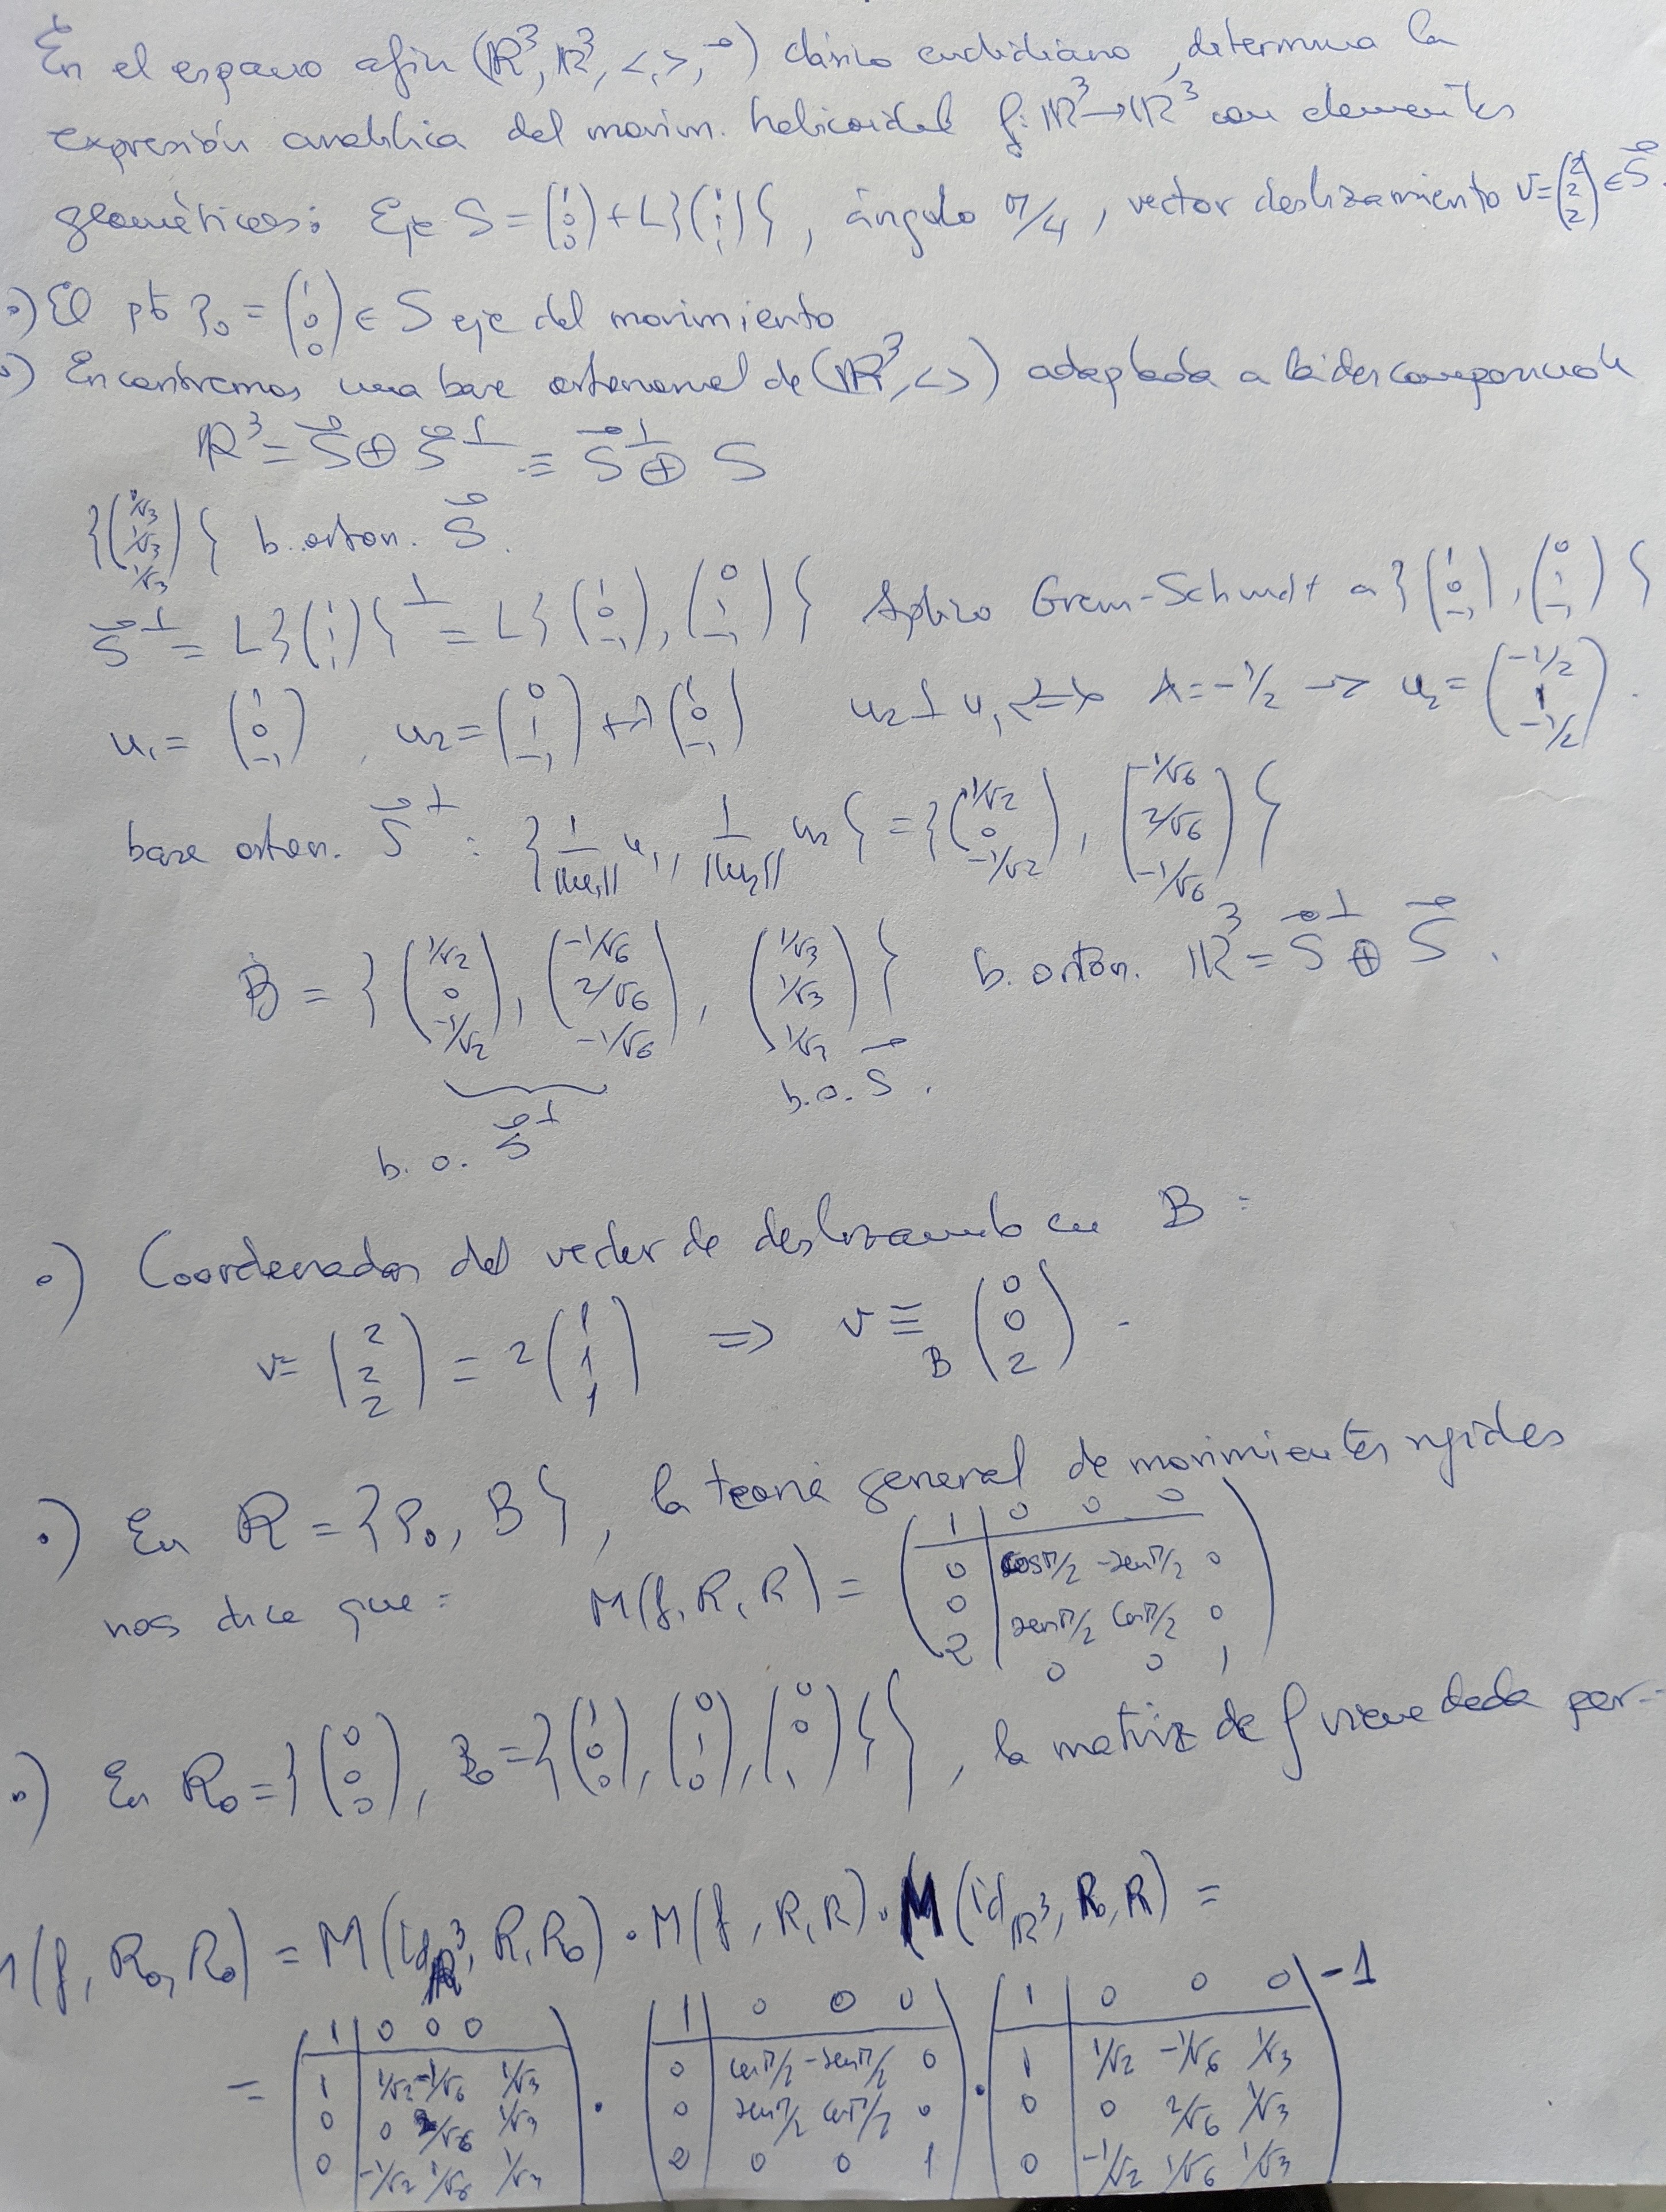 En el espacio afín (ℝ³, ℝ³, <,>, →) clásico euclidiano, determina la
expresión analítica del movim. helicoidal f: ℝ³→ℝ³ con elementos
geométricos: Eje S = (1 0 0) + L{(1 1 1)}, ángulo π/4, vector deslizamiento v = (2 2 2) ∈ S⃗.
•) El pto P₀ = (1 0 0) ∈ S eje del movimiento
•) Encontremos una base ortonormal de (ℝ³, <>) adaptada a la descomposición
ℝ³ = S⃗ ⊕ S⃗^⊥ = S⃗^⊥ ⊕ S
{(1/√3 1/√3 1/√3)} b. orton. S⃗.
S⃗^⊥ = L{(1 1 1)}^⊥ = L{(1 0 -1), (0 1 -1)} Aplico Gram-Schmidt a {(1 0 -1), (0 1 -1)}
u₁ = (1 0 -1), u₂ = (0 1 -1) + λ(1 0 -1) u₂ ⊥ u₁ ⟺ λ = -1/2 → u₂ = (-1/2 1 -1/2).
base orton. S⃗^⊥ : {1/||u₁|| u₁, 1/||u₂|| u₂} = {(1/√2 0 -1/√2), (-1/√6 2/√6 -1/√6)}
B = {(1/√2 0 -1/√2), (-1/√6 2/√6 -1/√6), (1/√3 1/√3 1/√3)} b. orton. ℝ³ = S⃗^⊥ ⊕ S⃗.
b.o. S⃗^⊥ b.o. S⃗.
•) Coordenadas del vector de deslizamiento en B :
v = (2 2 2) = 2(1 1 1) ⇒ v ≡_B (0 0 2).
•) En R = {P₀, B}, la teoría general de movimientos rígidos
nos dice que : M(f, R, R) = (1 | 0 0 0 ; 0 | cosπ/2 -senπ/2 0 ; 0 | senπ/2 cosπ/2 0 ; 2 | 0 0 1)
•) En R₀ = {(0 0 0), B₀ = {(1 0 0), (0 1 0), (0 0 1)}}, la matriz de f viene dada por
M(f, R₀, R₀) = M(id_ℝ³, R, R₀) · M(f, R, R) · M(id_ℝ³, R₀, R) =
= (1 | 0 0 0 ; 1 | 1/√2 -1/√6 1/√3 ; 0 | 0 2/√6 1/√3 ; 0 | -1/√2 1/√6 1/√3) · (1 | 0 0 0 ; 0 | cosπ/2 -senπ/2 0 ; 0 | senπ/2 cosπ/2 0 ; 2 | 0 0 1) · (1 | 0 0 0 ; 1 | 1/√2 -1/√6 1/√3 ; 0 | 0 2/√6 1/√3 ; 0 | -1/√2 1/√6 1/√3)^-1